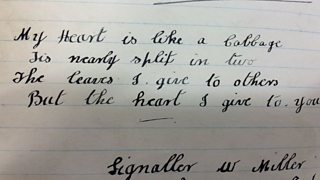 My Heart is like a Cabbage
Tis nearly split in two
The leaves I. give to others
But the heart I give to. you
Signaller W Miller